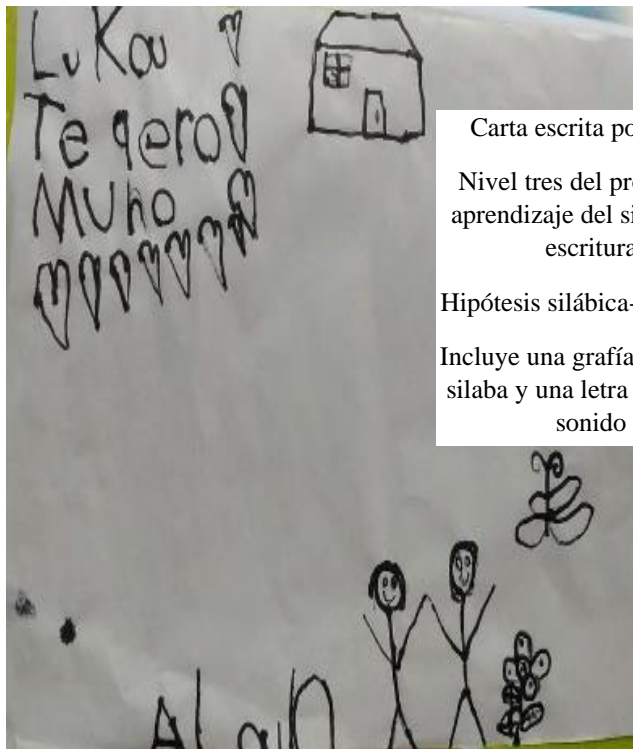 Te qero
Muho
Carta escrita po
Nivel tres del pr
aprendizaje del si
escritura
Hipótesis silábica-
Incluye una grafía
silaba y una letra
sonido